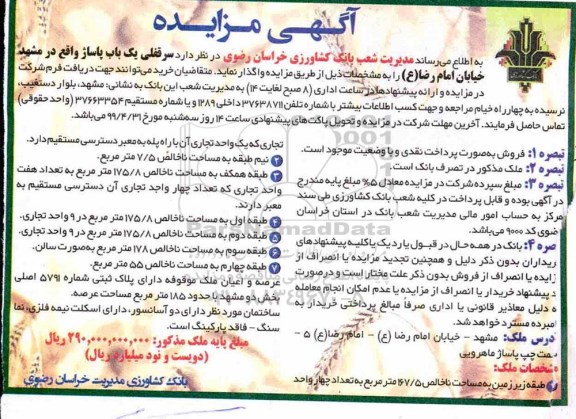 آگهی مزایده
به اطلاع می‌رساند مدیریت شعب بانک کشاورزی خراسان رضوی در نظر دارد سرقفلی یک باب پاساژ واقع در مشهد
خیابان امام رضا(ع) را به مشخصات ذیل از طریق مزایده واگذار نماید. متقاضیان خرید می‌توانند جهت دریافت فرم شرکت
در مزایده و ارائه پیشنهادها در ساعت اداری (۸ صبح لغایت ۱۴) به مدیریت شعب این بانک به نشانی: مشهد، بلوار دستغیب،
نرسیده به چهارراه خیام مراجعه و جهت کسب اطلاعات بیشتر با شماره تلفن ۳۷۶۳۸۷۱۱ داخلی ۱۲۸۹ و یا شماره مستقیم ۳۷۶۶۳۳۵۴ (واحد حقوقی)
تماس حاصل فرمایند. آخرین مهلت شرکت در مزایده و تحویل پاکت‌های پیشنهادی ساعت ۱۴ روز سه‌شنبه مورخ ۹۹/۴/۳۱ می‌باشد.
تبصره ۱: فروش به‌صورت پرداخت نقدی و با وضعیت موجود است.
تبصره ۲: ملک مذکور در تصرف بانک است.
تبصره ۳: مبلغ سپرده شرکت در مزایده معادل ۵% مبلغ پایه مندرج
در آگهی بوده و قابل پرداخت در کلیه شعب بانک کشاورزی طی سند
مرکز به حساب امور مالی مدیریت شعب بانک در استان خراسان
رضوی کد ۹۰۰۰ می‌باشد.
صره ۴: بانک در همه حال در قبول یا رد یک یا کلیه پیشنهادهای
ریداران بدون ذکر دلیل و همچنین تجدید مزایده یا انصراف از
زایده یا انصراف از فروش بدون ذکر علت مختار است و در صورت
د پیشنهاد خریدار یا انصراف از مزایده یا عدم امکان انجام معامله
ه دلیل معاذیر قانونی یا اداری صرفاً مبالغ پرداختی خریدار به
امبرده مسترد خواهد شد.
درس ملک: مشهد - خیابان امام رضا (ع) - امام رضا(ع) ۵ -
مت چپ پاساژ ماهرویی
شخصات ملک:
طبقه زیرزمین به مساحت ناخالص ۱۶۷/۵ متر مربع به تعداد چهار واحد
تجاری که یک واحد تجاری آن با راه پله به معبر دسترسی مستقیم دارد.
۲ نیم طبقه به مساحت ناخالص ۷/۵ متر مربع.
۳ طبقه همکف به مساحت ناخالص ۱۷۵/۸ متر مربع به تعداد هفت
واحد تجاری که تعداد چهار واحد تجاری آن دسترسی مستقیم به
معبر دارند.
۴ طبقه اول به مساحت ناخالص ۱۷۵/۸ متر مربع در ۹ واحد تجاری.
۵ طبقه دوم به مساحت ناخالص ۱۷۵/۸ متر مربع در ۹ واحد تجاری.
۶ طبقه سوم به مساحت ناخالص ۱۷۸ متر مربع به‌صورت سالن.
۷ طبقه چهارم به مساحت ناخالص ۵۵ متر مربع.
عرصه و اعیان ملک موقوفه دارای پلاک ثبتی شماره ۵۷۹۱ اصلی
بخش دو مشهد با حدود ۱۸۵ متر مربع مساحت عرصه.
ساختمان مورد نظر دارای دو آسانسور، دارای اسکلت نیمه فلزی، نما
سنگ - فاقد پارکینگ است.
مبلغ پایه ملک مذکور: ۲۹۰,۰۰۰,۰۰۰,۰۰۰ ریال
(دویست و نود میلیارد ریال)
بانک کشاورزی مدیریت خراسان رضوی